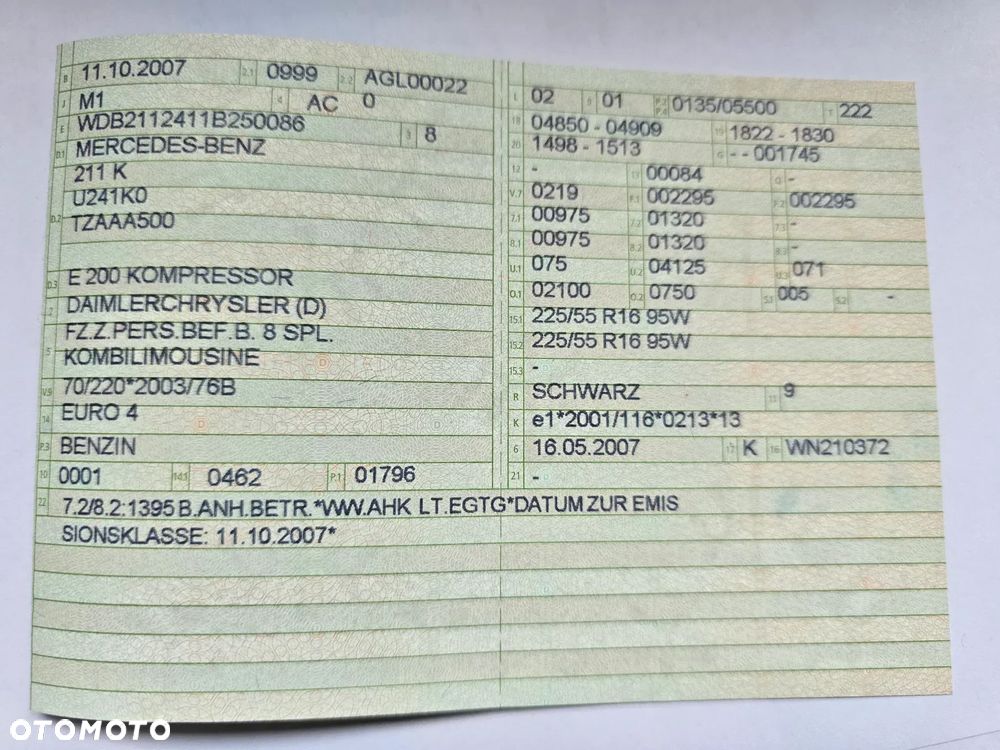 B 11.10.2007 2.1 0999 2.2 AGL00022
J M1 4 AC 0
E WDB2112411B250086 3 8
D.1 MERCEDES-BENZ
211 K
D.2 U241K0
TZAAA500
D.3 E 200 KOMPRESSOR
2 DAIMLERCHRYSLER (D)
5 FZ.Z.PERS.BEF.B. 8 SPL.
KOMBILIMOUSINE
V.9 70/220*2003/76B
14 EURO 4
P.3 BENZIN
10 0001 14.1 0462 P.1 01796
L 02 9 01 P.2 P.4 0135/05500 T 222
18 04850 - 04909 19 1822 - 1830
20 1498 - 1513 G - - 001745
12 - 13 00084 Q -
V.7 0219 F.1 002295 F.2 002295
7.1 00975 7.2 01320 7.3 -
8.1 00975 8.2 01320 8.3 -
U.1 075 U.2 04125 U.3 071
O.1 02100 O.2 0750 S.1 005 S.2 -
15.1 225/55 R16 95W
15.2 225/55 R16 95W
15.3 -
R SCHWARZ 11 9
K e1*2001/116*0213*13
6 16.05.2007 17 K 16 WN210372
21 -
22 7.2/8.2:1395 B.ANH.BETR.*WW.AHK LT.EGTG*DATUM ZUR EMIS
SIONSKLASSE: 11.10.2007*
OTOMOTO